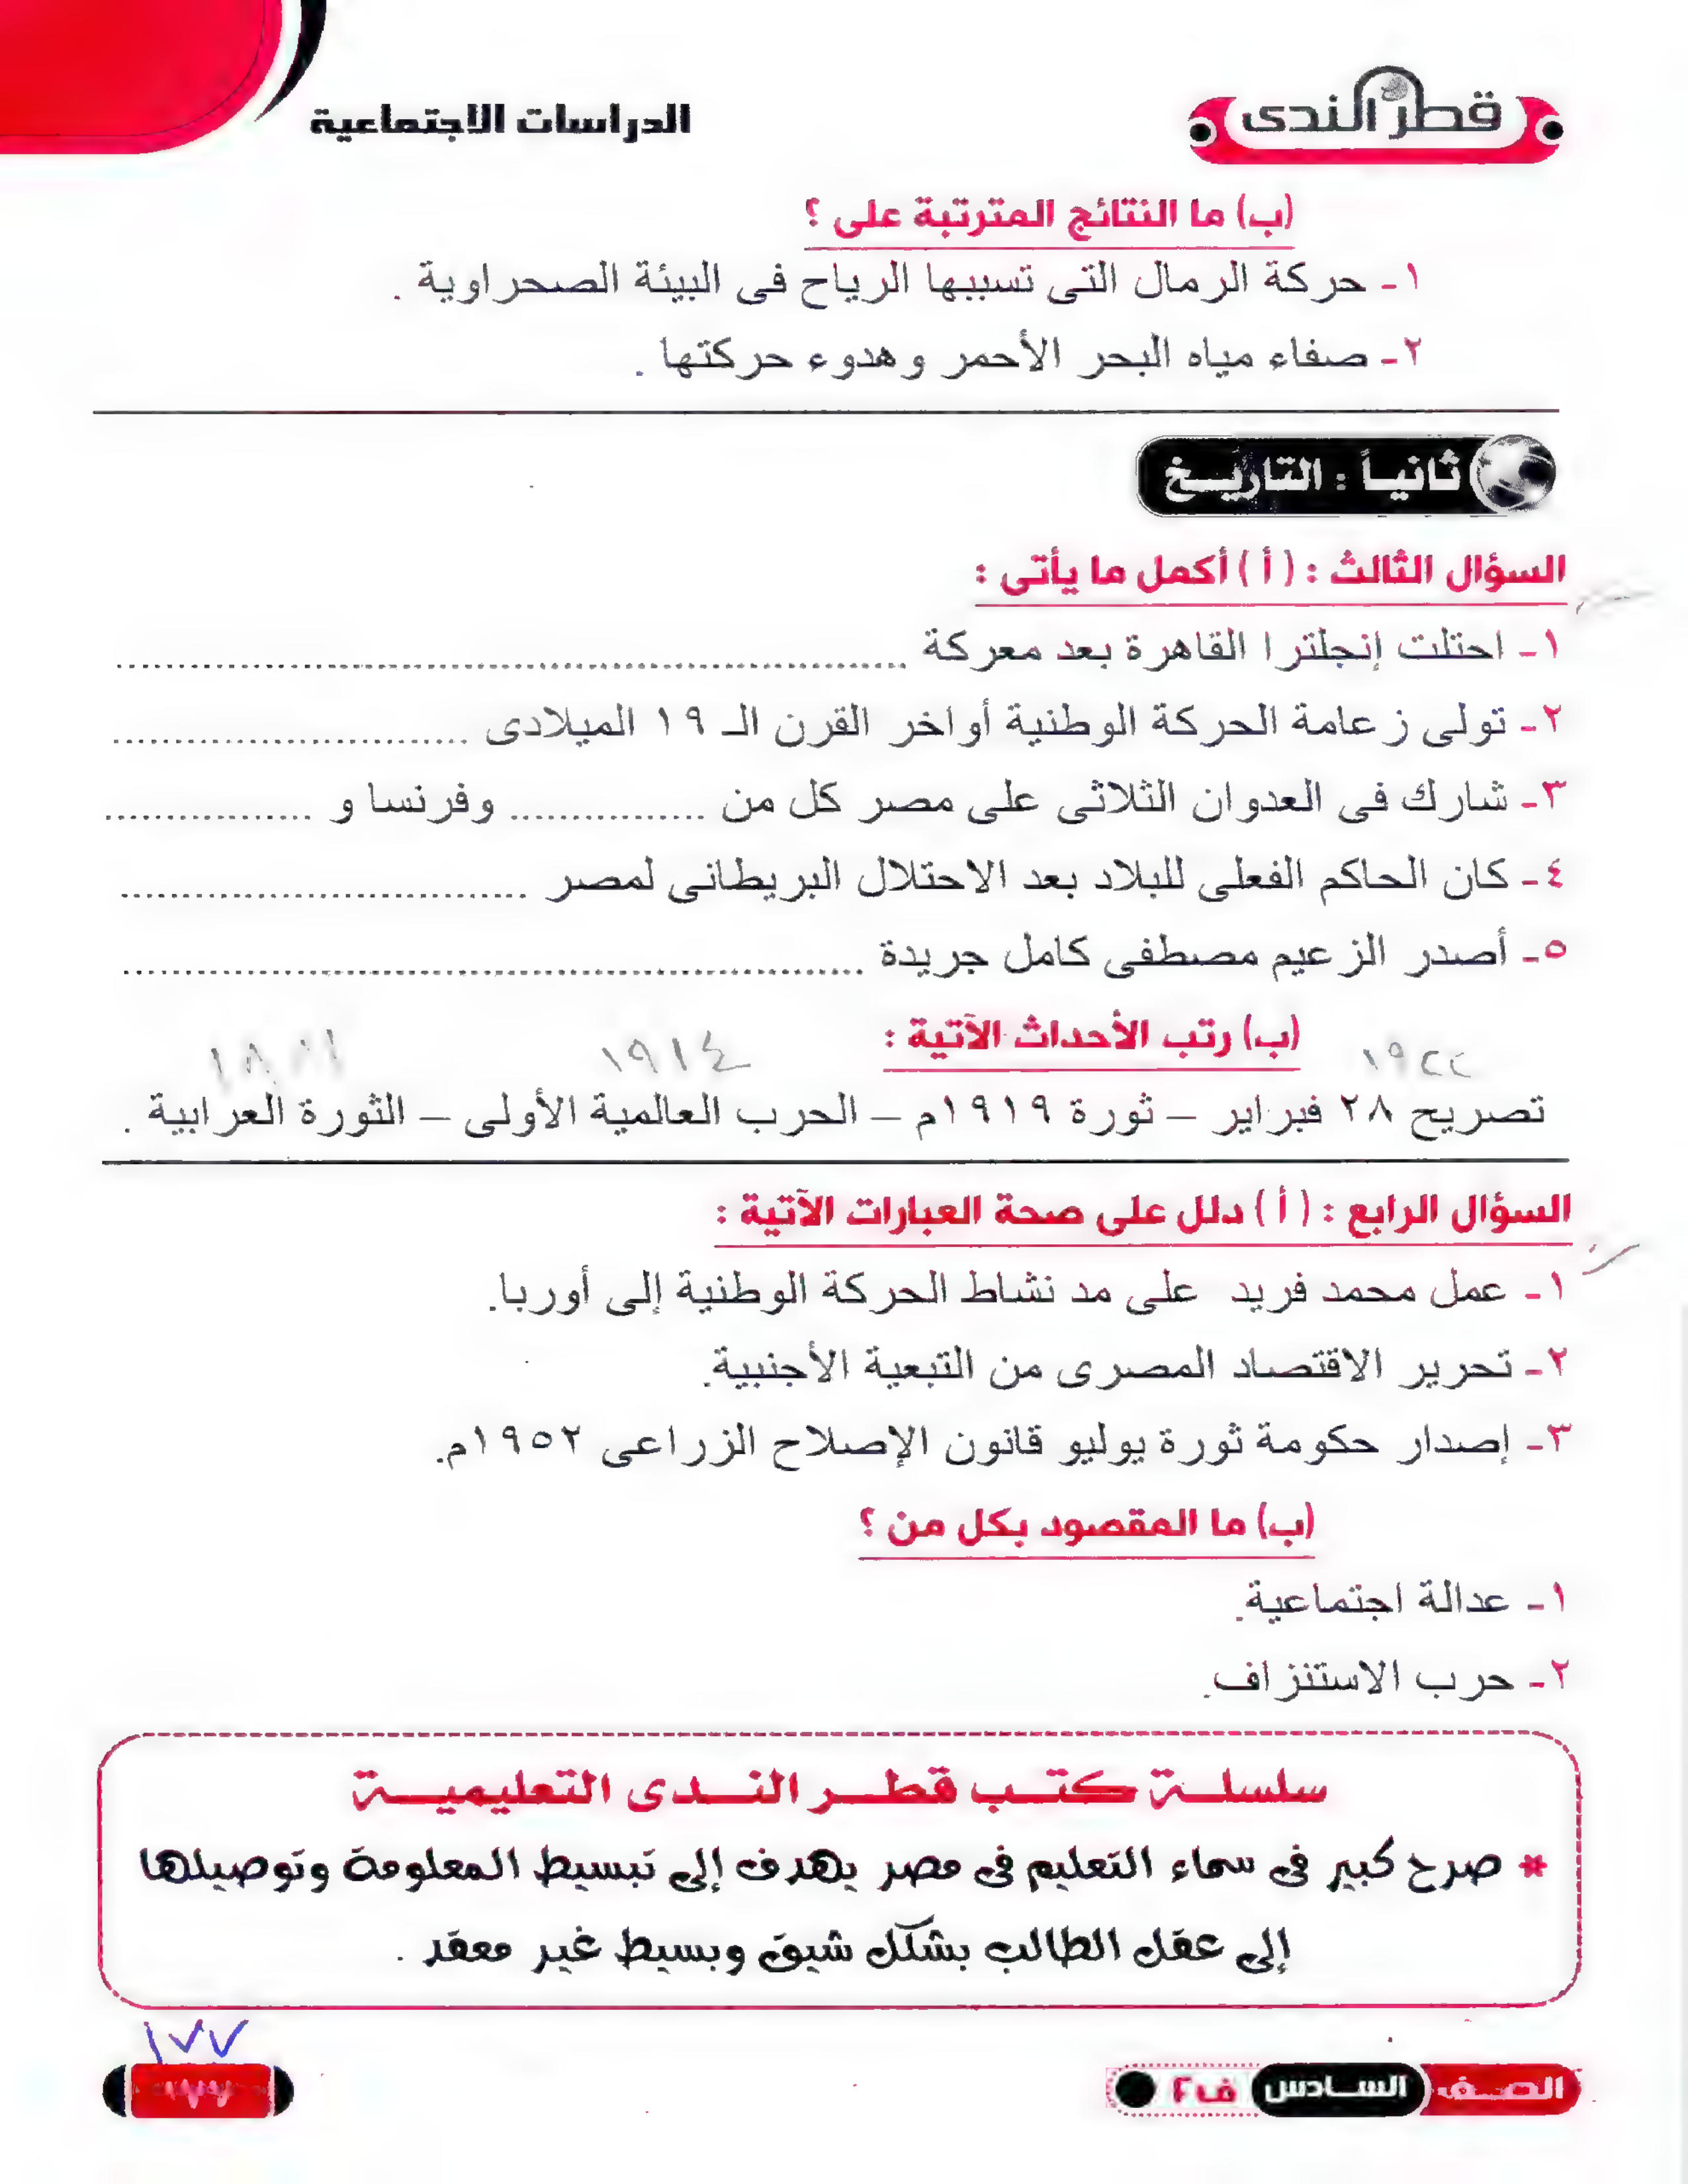 قطر الندى
الدراسات الاجتماعية
(ب) ما النتائج المترتبة على ؟
١- حركة الرمال التى تسببها الرياح فى البيئة الصحراوية .
٢- صفاء مياه البحر الأحمر وهدوء حركتها .
ثانياً : التاريـخ
السؤال الثالث : ( أ ) أكمل ما يأتى :
١- احتلت إنجلترا القاهرة بعد معركة ........................................
٢- تولى زعامة الحركة الوطنية أواخر القرن الـ ١٩ الميلادى ..............................
٣- شارك فى العدوان الثلاثى على مصر كل من ................ وفرنسا و .................
٤- كان الحاكم الفعلى للبلاد بعد الاحتلال البريطانى لمصر ..................................
٥- أصدر الزعيم مصطفى كامل جريدة ........................................
(ب) رتب الأحداث الآتية :
١٩٢٢ ١٩١٤ ١٨٨١
تصريح ٢٨ فبراير – ثورة ١٩١٩م – الحرب العالمية الأولى – الثورة العرابية .
السؤال الرابع : ( أ ) دلل على صحة العبارات الآتية :
١- عمل محمد فريد على مد نشاط الحركة الوطنية إلى أوربا.
٢- تحرير الاقتصاد المصرى من التبعية الأجنبية.
٣- إصدار حكومة ثورة يوليو قانون الإصلاح الزراعى ١٩٥٢م.
(ب) ما المقصود بكل من ؟
١- عدالة اجتماعية.
٢- حرب الاستنزاف.
سلسلـة كتـب قطـر النـدى التعليميـة
* صرح كبير فى سماء التعليم فى مصر يهدف إلى تبسيط المعلومة وتوصيلها
إلى عقل الطالب بشكل شيق وبسيط غير معقد .
١٧٧
الصـف السـادس ف٢